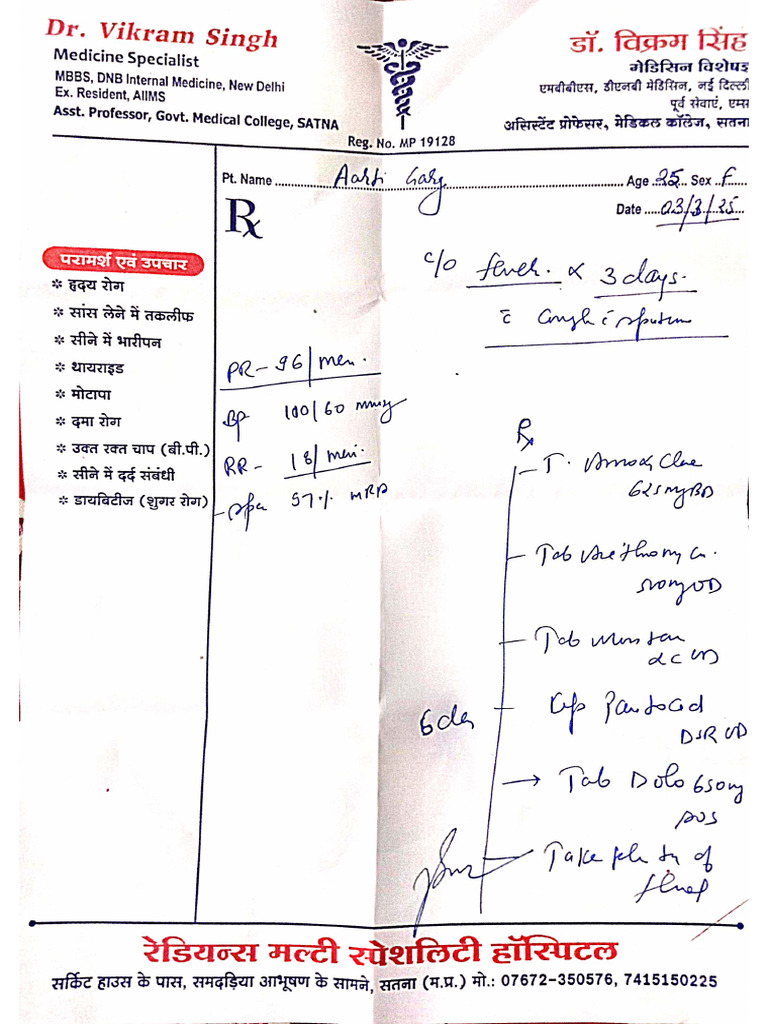 Dr. Vikram Singh
Medicine Specialist
MBBS, DNB Internal Medicine, New Delhi
Ex. Resident, AIIMS
Asst. Professor, Govt. Medical College, SATNA
डॉ. विक्रम सिंह
मेडिसिन विशेषज्ञ
एमबीबीएस, डीएनबी मेडिसिन, नई दिल्ली
पूर्व सेवाएं, एम्स
असिस्टेंट प्रोफेसर, मेडिकल कॉलेज, सतना
Reg. No. MP 19128
Pt. Name Aarti Garg Age 25 Sex F
Rx
Date 03/3/25
परामर्श एवं उपचार
* हृदय रोग
* सांस लेने में तकलीफ
* सीने में भारीपन
* थायराइड
* मोटापा
* दमा रोग
* उक्त रक्त चाप (बी.पी.)
* सीने में दर्द संबंधी
* डायबिटीज (शुगर रोग)
c/o fever. 3 days.
c cough c sputum
PR - 96/min.
BP 100/60 mmHg
RR - 18/min.
97%
Rx
T. Amoxy Clav
625mg BD
Tab Azithromycin
500mg OD
Tab
LC
Cap Pantocid
DSR OD
6 day
Tab Dolo 650mg
SOS
Take plenty of
fluid
रेडियन्स मल्टी स्पेशलिटी हॉस्पिटल
सर्किट हाउस के पास, समदड़िया आभूषण के सामने, सतना (म.प्र.) मो.: 07672-350576, 7415150225